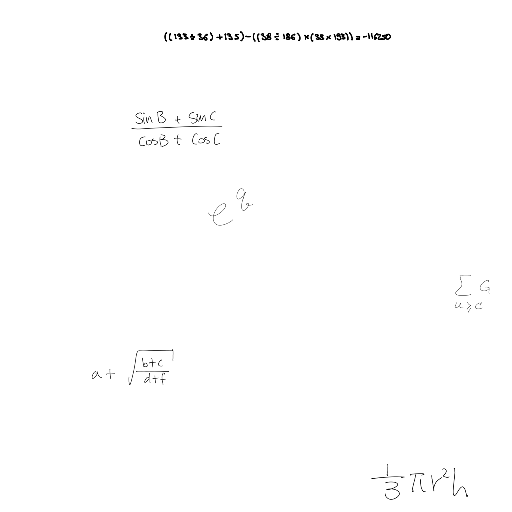 ((133÷36)+135)-((38÷186)×(38×153))=-116250
sin B + sin C
cos B + cos C
e^q
∑ G
a ≥ c
a + √((b+c)/(d+f))
1/3 πr²h